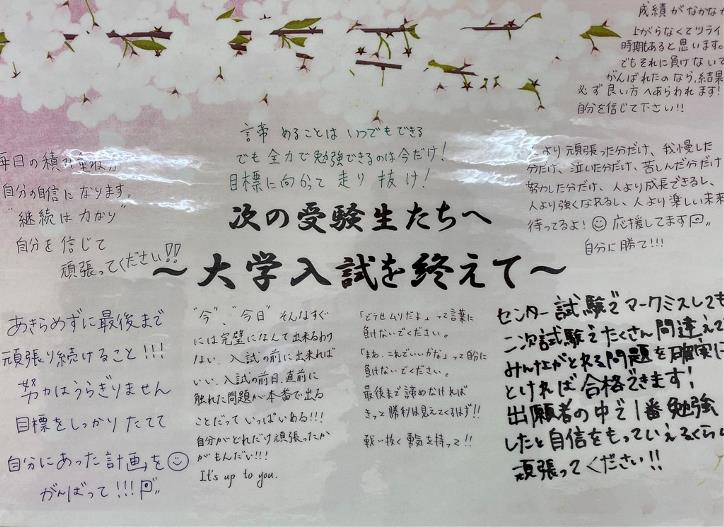 成績がなかなか
上がらなくてツライ
時期あると思います。
でもそれに負けないで
がんばれたのなら、結果
必ず良い方へあらわれます!
自分を信じて下さい!!
諦めることはいつでもできる
でも全力で勉強できるのは今だけ!
目標に向かって走り抜け!
毎日の積み重ねが
自分の自信になります。
"継続は力なり"
自分を信じて
頑張ってください!!
より頑張った分だけ、我慢した
分だけ、泣いた分だけ、苦しんだ分だけ
努力した分だけ、人より成長できるし、
人より強くなれるし、人より楽しい未来
待ってるよ!☺応援してます
自分に勝て!!!
次の受験生たちへ
~大学入試を終えて~
あきらめずに最後まで
頑張り続けること!!!
努力はうらぎりません
目標をしっかりたてて
自分にあった計画を☺
がんばって!!!
"今"、"今日"そんなすぐ
には完璧になんて出来るわけ
ない。入試の前に出来れば
いい。入試の前日、直前に
触れた問題が本番で出る
ことだっていっぱいある!!!
自分がどれだけ頑張ったか
がもんだい!!!
It's up to you.
「どうせムリだよ」って言葉に
負けないでください。
「まぁ、これでいいかな」って自分に
負けないでください。
最後まで諦めなければ
きっと勝利は見えてくるはず!!
戦い抜く勇気を持って!!
センター試験でマークミスしても
二次試験でたくさん間違えて
みんながとれる問題を確実に
とければ合格できます!
出願者の中で1番勉強
したと自信をもっていえるくらい
頑張ってください!!